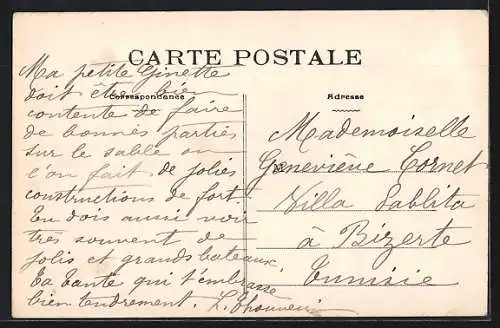 CARTE POSTALE
Correspondance
Adresse
Ma petite Ginette
doit être bien
contente de faire
de bonnes parties
sur le sable où
l'on fait de jolies
constructions de fort.
Tu dois aussi voir
très souvent de
jolis et grands bateaux.
Ta tante qui t'embrasse
bien tendrement.
Mademoiselle
Geneviève Cornet
Villa
à Bizerte
Tunisie